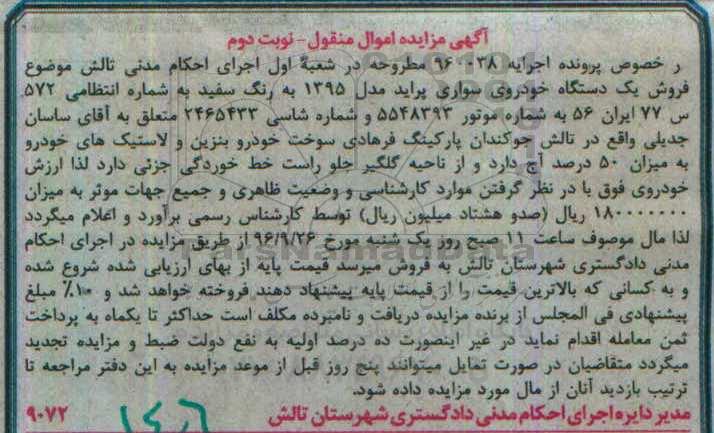 آگهی مزایده اموال منقول - نوبت دوم
ر خصوص پرونده اجرایه ۹۶۰۰۳۸ مطروحه در شعبهٔ اول اجرای احکام مدنی تالش موضوع
فروش یک دستگاه خودروی سواری پراید مدل ۱۳۹۵ به رنگ سفید به شماره انتظامی ۵۷۲
س ۷۷ ایران ۵۶ به شماره موتور ۵۵۴۸۳۹۳ و شماره شاسی ۲۴۶۵۴۳۳ متعلق به آقای ساسان
جدیلی واقع در تالش جوکندان پارکینگ فرهادی سوخت خودرو بنزین و لاستیک های خودرو
به میزان ۵۰ درصد آج دارد و از ناحیه گلگیر جلو راست خط خوردگی جزئی دارد لذا ارزش
خودروی فوق با در نظر گرفتن موارد کارشناسی و وضعیت ظاهری و جمیع جهات موثر به میزان
۱۸۰۰۰۰۰۰۰ ریال (صدو هشتاد میلیون ریال) توسط کارشناس رسمی برآورد و اعلام میگردد
لذا مال موصوف ساعت ۱۱ صبح روز یک شنبه مورخ ۹۶/۷/۲۶ از طریق مزایده در اجرای احکام
مدنی دادگستری شهرستان تالش به فروش میرسد قیمت پایه از بهای ارزیابی شده شروع شده
و به کسانی که بالاترین قیمت را از قیمت پایه پیشنهاد دهند فروخته خواهد شد و ۱۰٪ مبلغ
پیشنهادی فی المجلس از برنده مزایده دریافت و نامبرده مکلف است حداکثر تا یکماه به پرداخت
ثمن معامله اقدام نماید در غیر اینصورت ده درصد اولیه به نفع دولت ضبط و مزایده تجدید
میگردد متقاضیان در صورت تمایل میتوانند پنج روز قبل از موعد مزایده به این دفتر مراجعه تا
ترتیب بازدید آنان از مال مورد مزایده داده شود.
مدیر دایره اجرای احکام مدنی دادگستری شهرستان تالش ۹۰۷۲